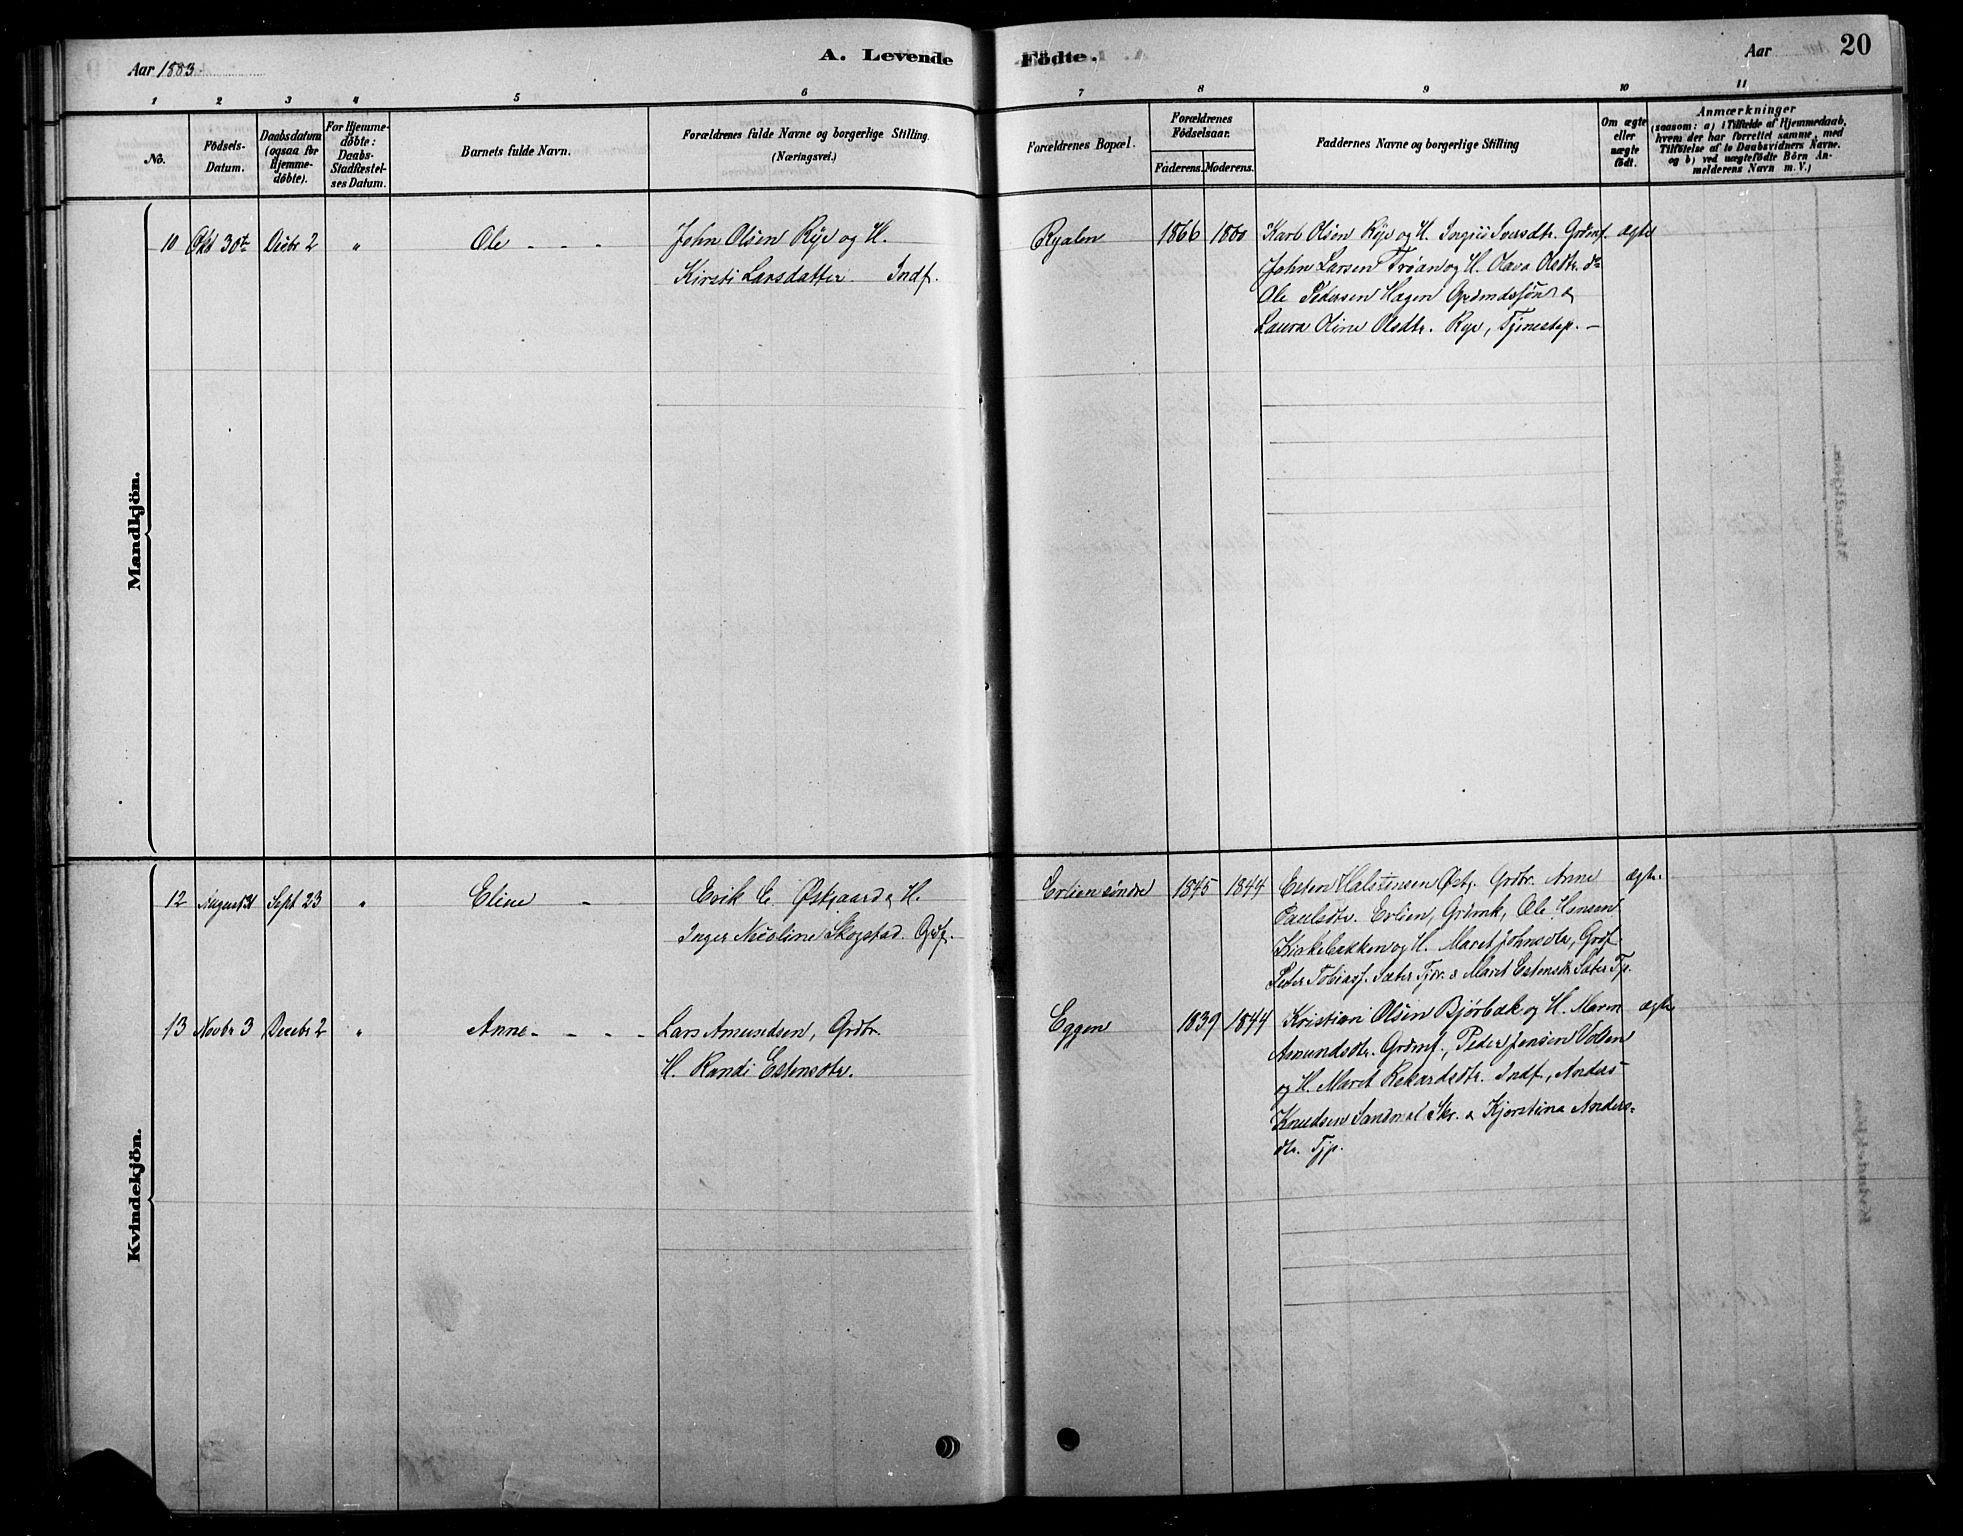 Aar 1883.
A. Levende Födte.
Aar
20
1 2 3 4 5 6 7 8 9 10 11
No.
Födsels-
Datum.
Daabsdatum
(ogsaa for
Hjemme-
döbte).
For Hjemme-
döbte:
Daabs-
Stadfæstel-
ses Datum.
Barnets fulde Navn.
Forældrenes fulde Navne og borgerlige Stilling.
(Næringsvei.)
Forældrenes Bopæl.
Forældrenes
Födselsaar.
Faderens. Moderens.
Faddernes Navne og borgerlige Stilling
Om ægte
eller
uægte
födt.
Anmærkninger
(saasom: a) i Tilfælde af Hjemmedaab,
hvem der har forrettet samme, med
Tilföielse af to Daabsvidners Navne.
og b) ved uægtefödte Börn An-
melderens Navn m. V.)
Mandkjön.
10 Okt 30te Decbr 2 " Ole - - -
John Olsen Rye og H.
Kirsti Larsdatter Indf.
Ryalen 1866 1860
Olsen Rye og H. Iversdtr. Grdmf. ægte
John Larsen Trøan og H. Olava Olsdtr. do
Ole Pedersen Hagen
Laura Oline Olsdtr. Rye, Tjenestep. -
Kvindekjön.
12 August 31 Sept 23 " Eline -
Erik E. Østgaard & H.
Inger Nicoline Skogstad. Grdf.
Erlien søndre 1845 1844
Esten Halstensen Østg. Grdbr. Anne ægte.
Paulsdtr. Erlien, Grdmk, Ole Hansen
Kirkebakken og H. Maret Johnsdtr, Grdf
Peder Tobiasf. Sæter Tjdr. & Maret Estensdtr Sæter Tp.
13 Novbr 3 Decebr 2 " Anne - - - -
Lars Amundsen, Grdbr.
H. Randi Estensdtr.
Eggen 1839 1844
Kristian Olsen Bjørbæk og H. Maren ægte
Amundsdtr. Grdmf., Peder Jensen Volden
og H. Maret Rekardsdtr. Indf, Anders
Knudsen Sandnal Skr. & Kjerstina Anders-
dtr. Tjp.